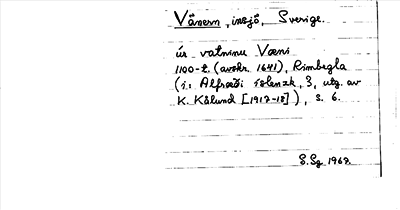 Vänern, insjö, Sverige.
úr vatninu Væni
1100-t. (avskr. 1641), Rimbegla
(i: Alfræði íslenzk, 3, utg. av
K. Kålund [1917-18]), s. 6.
S.Sg. 1967.